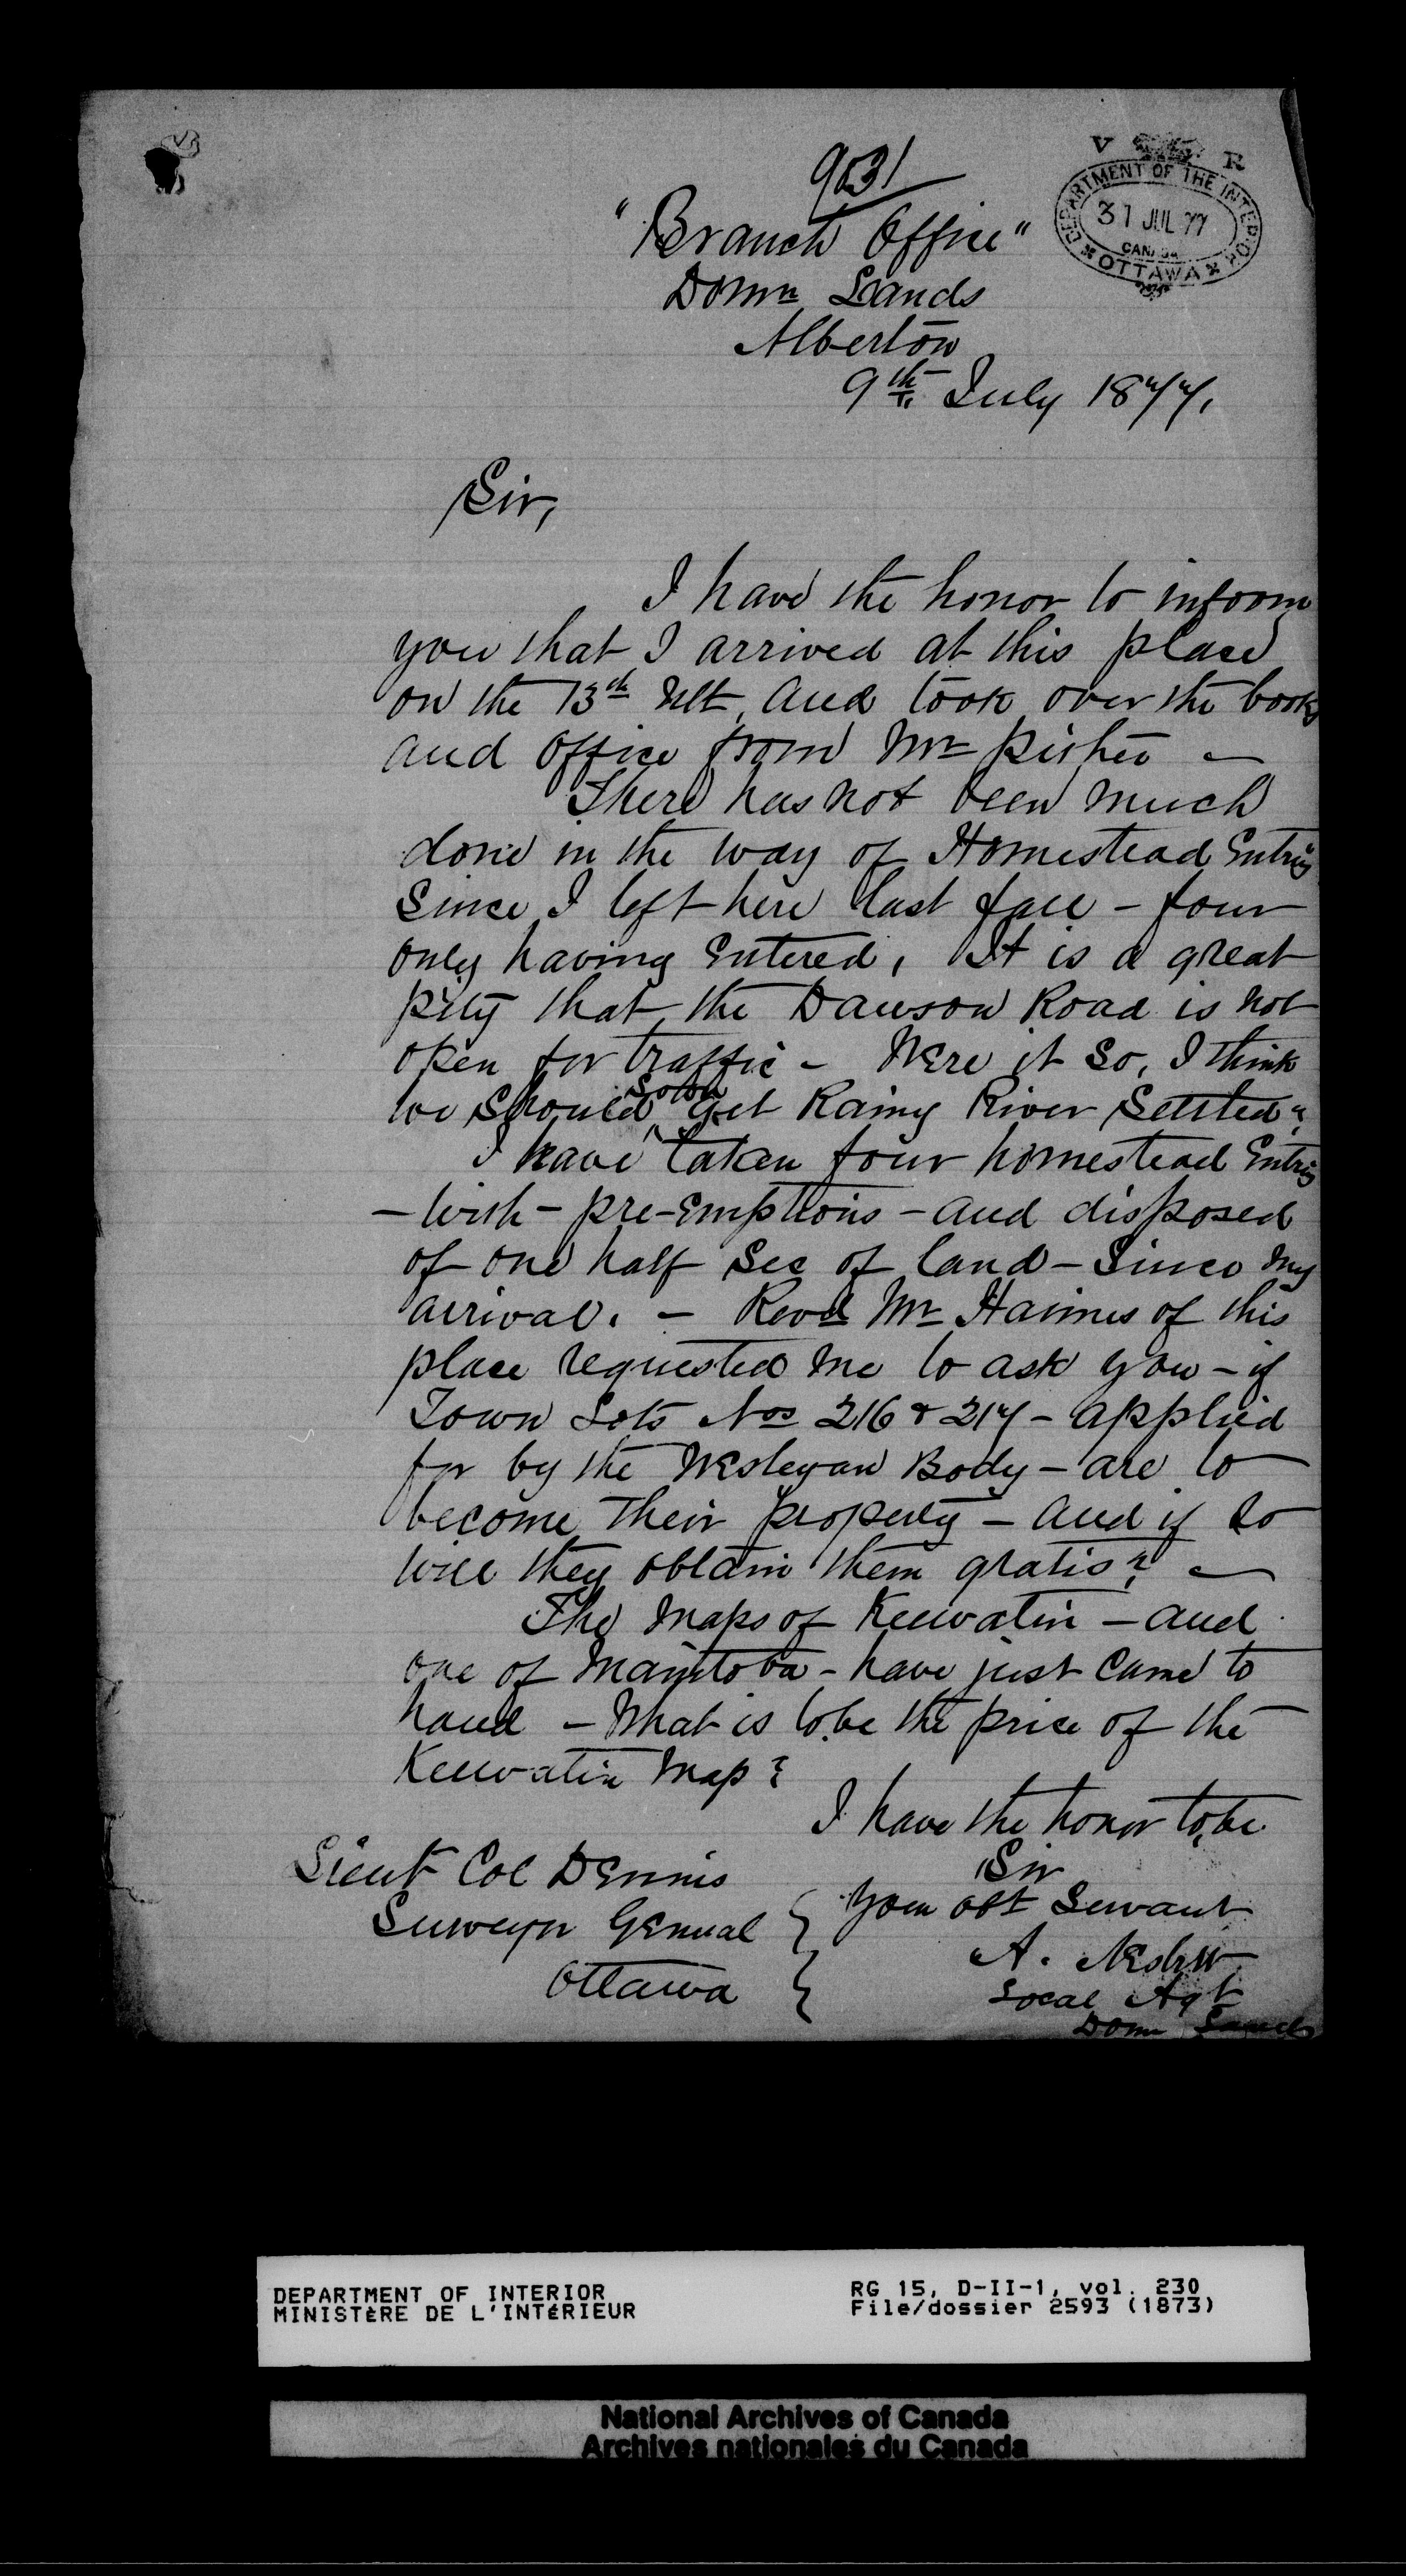 9531
V R
DEPARTMENT OF THE INTERIOR
31 JUL 77
CANADA
OTTAWA
"Branch Office"
Domn Lands
Alberton
9th July 1877.
Sir,
I have the honor to inform
you that I arrived at this place
on the 13th Ult, and took over the books
and office from Mr Pither —
There has not been much
done in the way of Homestead Entries
Since I left here last fall - four
only having Entered, It is a great
pity that the Dawson Road is not
open for traffic - Were it so, I think
we should soon get Rainy River Settled.
I have taken four homestead Entries
- with - pre-emptions - and disposed
of one half Sec of land - Since my
arrival. - Revd Mr Haines of this
place requested me to ask you - if
Town Lots Nos 216 & 217 - applied
for by the Wesleyan Body - are to
become their property - and if so
will they obtain them gratis? —
The Maps of Keewatin - and
one of Manitoba - have just came to
hand - What is to be the price of the
Keewatin Map?
I have the honor to be
Sir
Your obt Servant
A. Nesbitt
Local Agt
Domn Lands
Lieut Col Dennis
Surveyor General
Ottawa
DEPARTMENT OF INTERIOR
MINISTÈRE DE L'INTÉRIEUR
RG 15, D-II-1, vol. 230
File/dossier 2593 (1873)
National Archives of Canada
Archives nationales du Canada